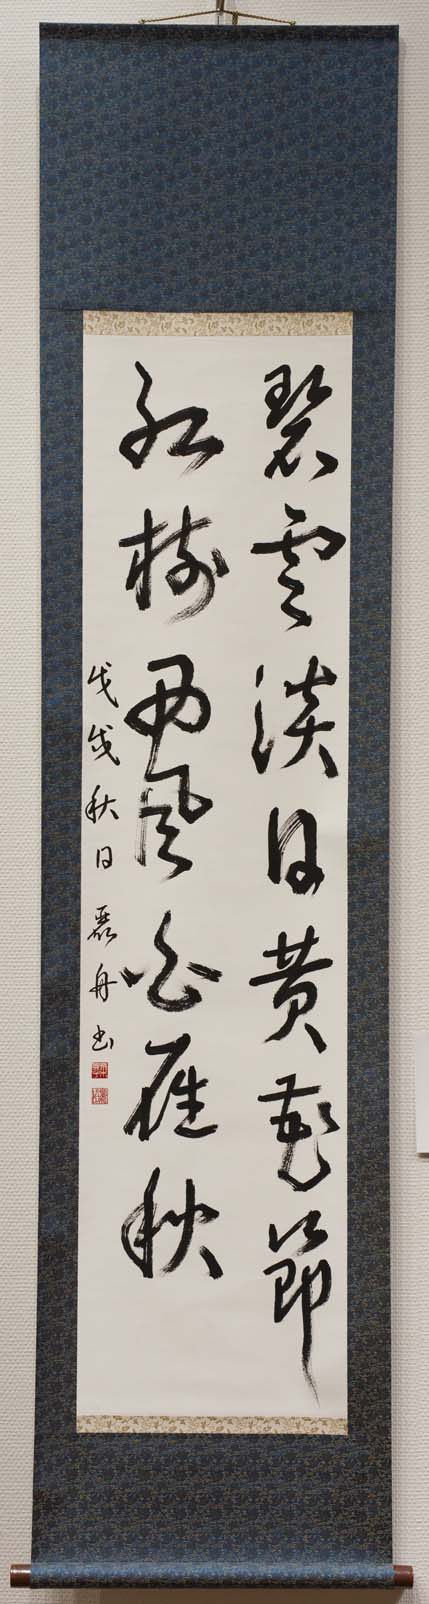 碧雲淡日黄花節
紅樹西風白雁秋
戊戌秋日 舟書